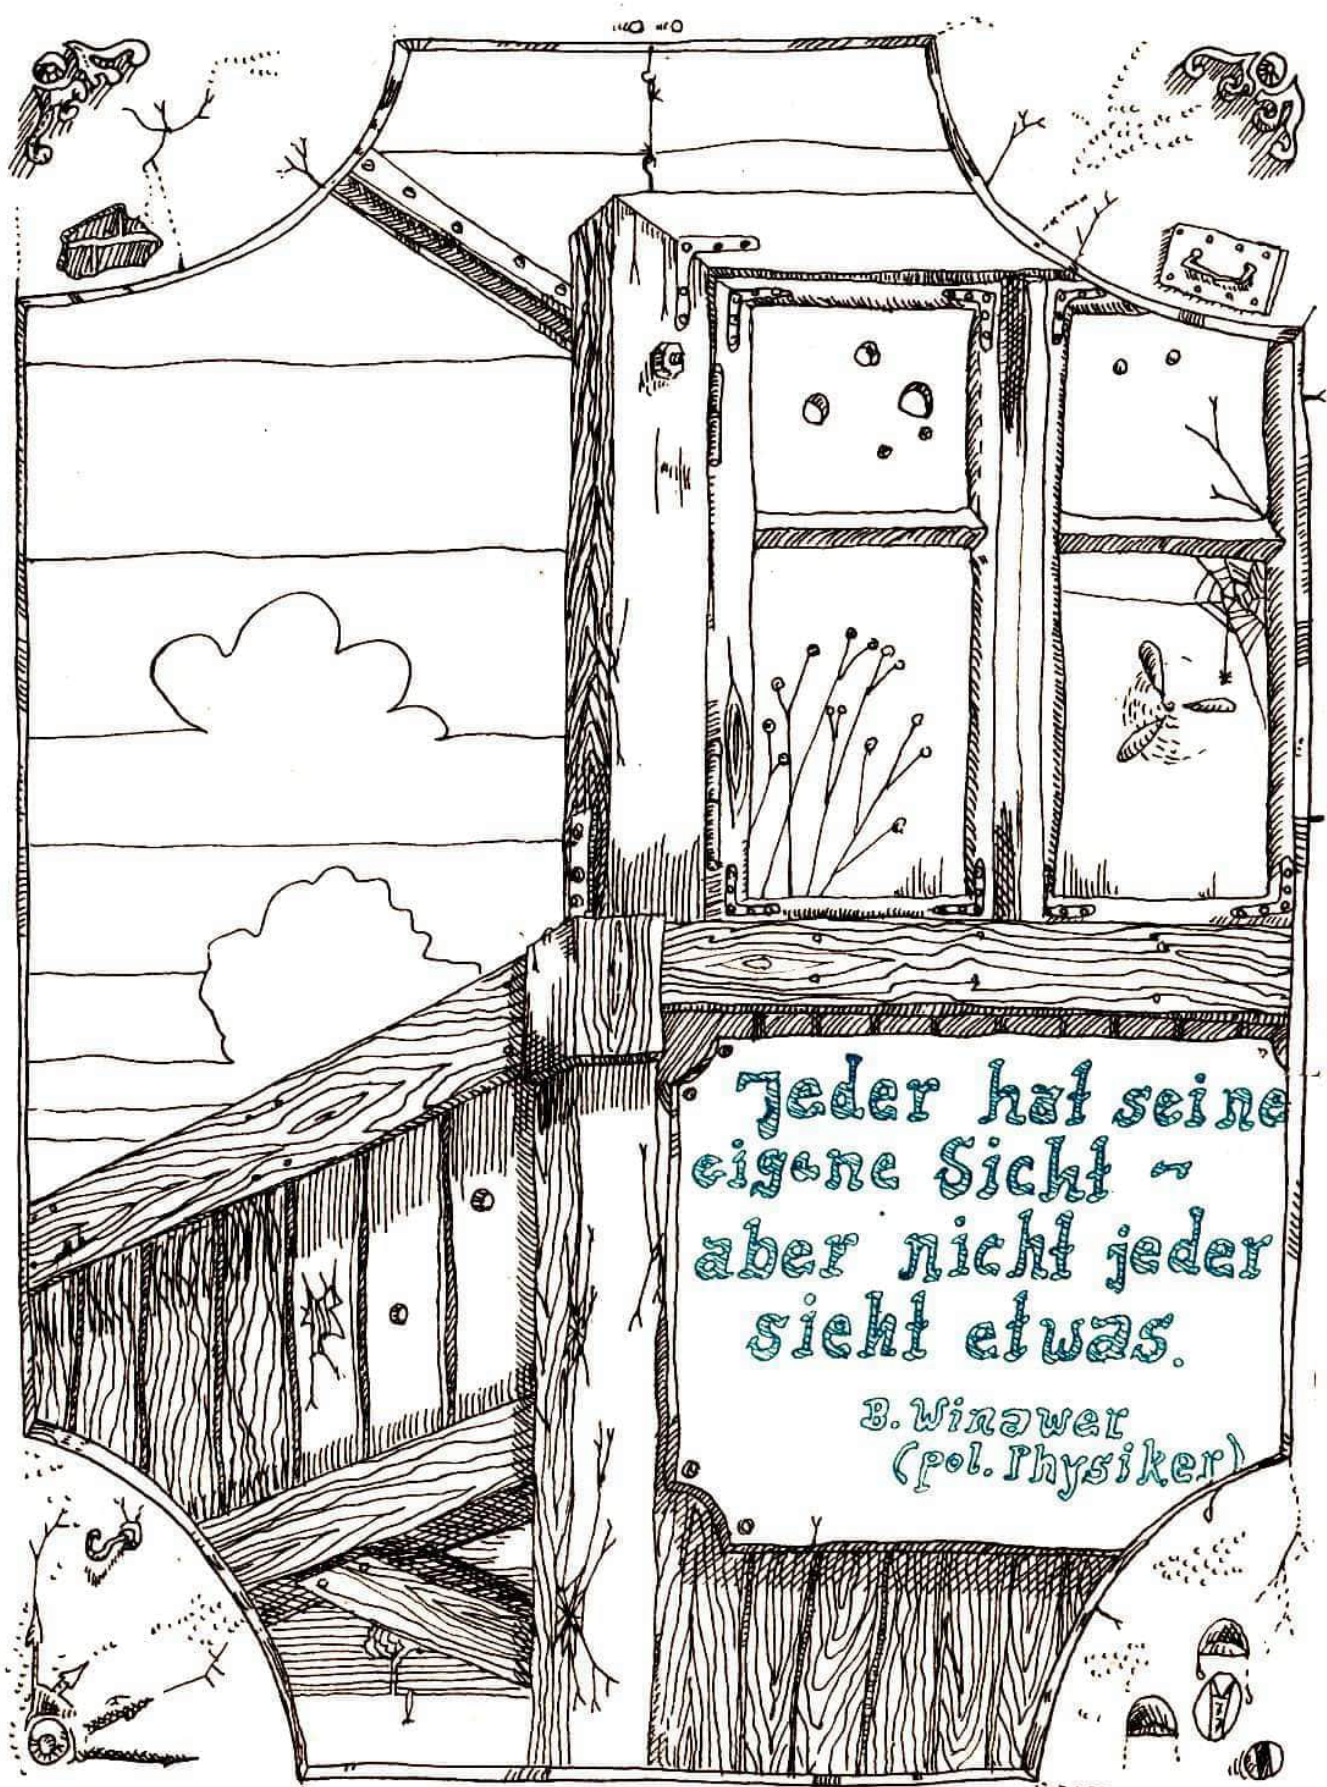 Jeder hat seine
eigene Sicht -
aber nicht jeder
sieht etwas.
B. Winawer
(pol. Physiker)